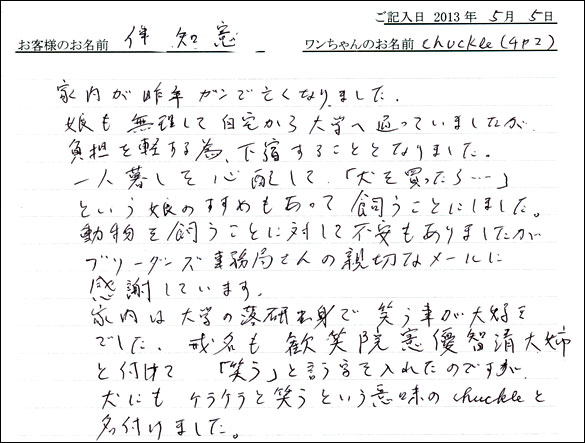 ご記入日 2013 年 5 月 5 日
お客様のお名前 伴 知憲 ワンちゃんのお名前 chuckle(4P22)
家内が昨年ガンで亡くなりました。
娘も無理して自宅から大学へ通っていましたが
負担を軽する為、下宿することとなりました。
一人暮しを心配して、「犬を買ったら…」
という娘のすすめもあって飼うことにしました。
動物を飼うことに対して不安もありましたが
ブリーダーズ事務局さんの親切なメールに
感謝しています。
家内は大学の落研出身で笑う事が大好き
でした。戒名も歓笑院憲優智清大姉
と付けて「笑う」と言う字を入れたのですが
犬にもケラケラと笑うという意味のchuckleと
名付けました。